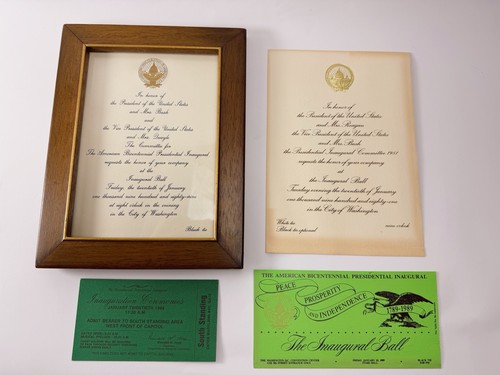 In honor of
the President of the United States
and Mrs. Bush
and
the Vice President of the United States
and Mrs. Quayle
The Committee for
The American Bicentennial Presidential Inaugural
requests the honor of your company
at the
Inaugural Ball
Friday, the twentieth of January
one thousand nine hundred and eighty-nine
at eight o'clock in the evening
in the City of Washington
Black tie
In honor of
the President of the United States
and Mrs. Reagan
the Vice President of the United States
and Mrs. Bush
the Presidential Inaugural Committee
requests the honor of your company
at
the Inaugural Ball
Tuesday evening the twentieth of January
one thousand nine hundred and eighty-one
in the City of Washington
White tie
Black tie optional
nine o'clock
Inauguration Ceremonies
ADMIT BEARER TO SOUTH STANDING AREA
WEST FRONT US CAPITOL
South Standing
THE AMERICAN BICENTENNIAL PRESIDENTIAL INAUGURAL
PEACE
PROSPERITY
AND INDEPENDENCE
1789-1989
The Inaugural Ball